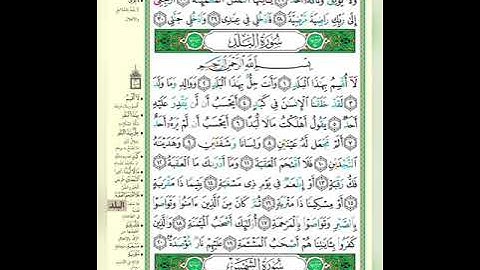 إِلَىٰ رَبِّكِ رَاضِيَةً مَّرْضِيَّةً ٢٨ فَٱدْخُلِى فِى عِبَٰدِى ٢٩ وَٱدْخُلِى جَنَّتِى ٣٠
سُورَةُ الْبَلَدِ
بِسْمِ ٱللَّهِ ٱلرَّحْمَٰنِ ٱلرَّحِيمِ
لَآ أُقْسِمُ بِهَٰذَا ٱلْبَلَدِ ١ وَأَنتَ حِلٌّۢ بِهَٰذَا ٱلْبَلَدِ ٢ وَوَالِدٍ وَمَا وَلَدَ
٣ لَقَدْ خَلَقْنَا ٱلْإِنسَٰنَ فِى كَبَدٍ ٤ أَيَحْسَبُ أَن لَّن يَقْدِرَ عَلَيْهِ
أَحَدٌ ٥ يَقُولُ أَهْلَكْتُ مَالًا لُّبَدًا ٦ أَيَحْسَبُ أَن لَّمْ يَرَهُۥٓ أَحَدٌ
٧ أَلَمْ نَجْعَل لَّهُۥ عَيْنَيْنِ ٨ وَلِسَانًا وَشَفَتَيْنِ ٩ وَهَدَيْنَٰهُ
ٱلنَّجْدَيْنِ ١٠ فَلَا ٱقْتَحَمَ ٱلْعَقَبَةَ ١١ وَمَآ أَدْرَىٰكَ مَا ٱلْعَقَبَةُ ١٢
فَكُّ رَقَبَةٍ ١٣ أَوْ إِطْعَٰمٌ فِى يَوْمٍ ذِى مَسْغَبَةٍ ١٤ يَتِيمًا ذَا مَقْرَبَةٍ
١٥ أَوْ مِسْكِينًا ذَا مَتْرَبَةٍ ١٦ ثُمَّ كَانَ مِنَ ٱلَّذِينَ ءَامَنُوا۟ وَتَوَاصَوْا۟
بِٱلصَّبْرِ وَتَوَاصَوْا۟ بِٱلْمَرْحَمَةِ ١٧ أُو۟لَٰٓئِكَ أَصْحَٰبُ ٱلْمَيْمَنَةِ ١٨ وَٱلَّذِينَ
كَفَرُوا۟ بِـَٔايَٰتِنَا هُمْ أَصْحَٰبُ ٱلْمَشْـَٔمَةِ ١٩ عَلَيْهِمْ نَارٌ مُّؤْصَدَةٌۢ ٢٠
سُورَةُ الشَّمْسِ
البلد